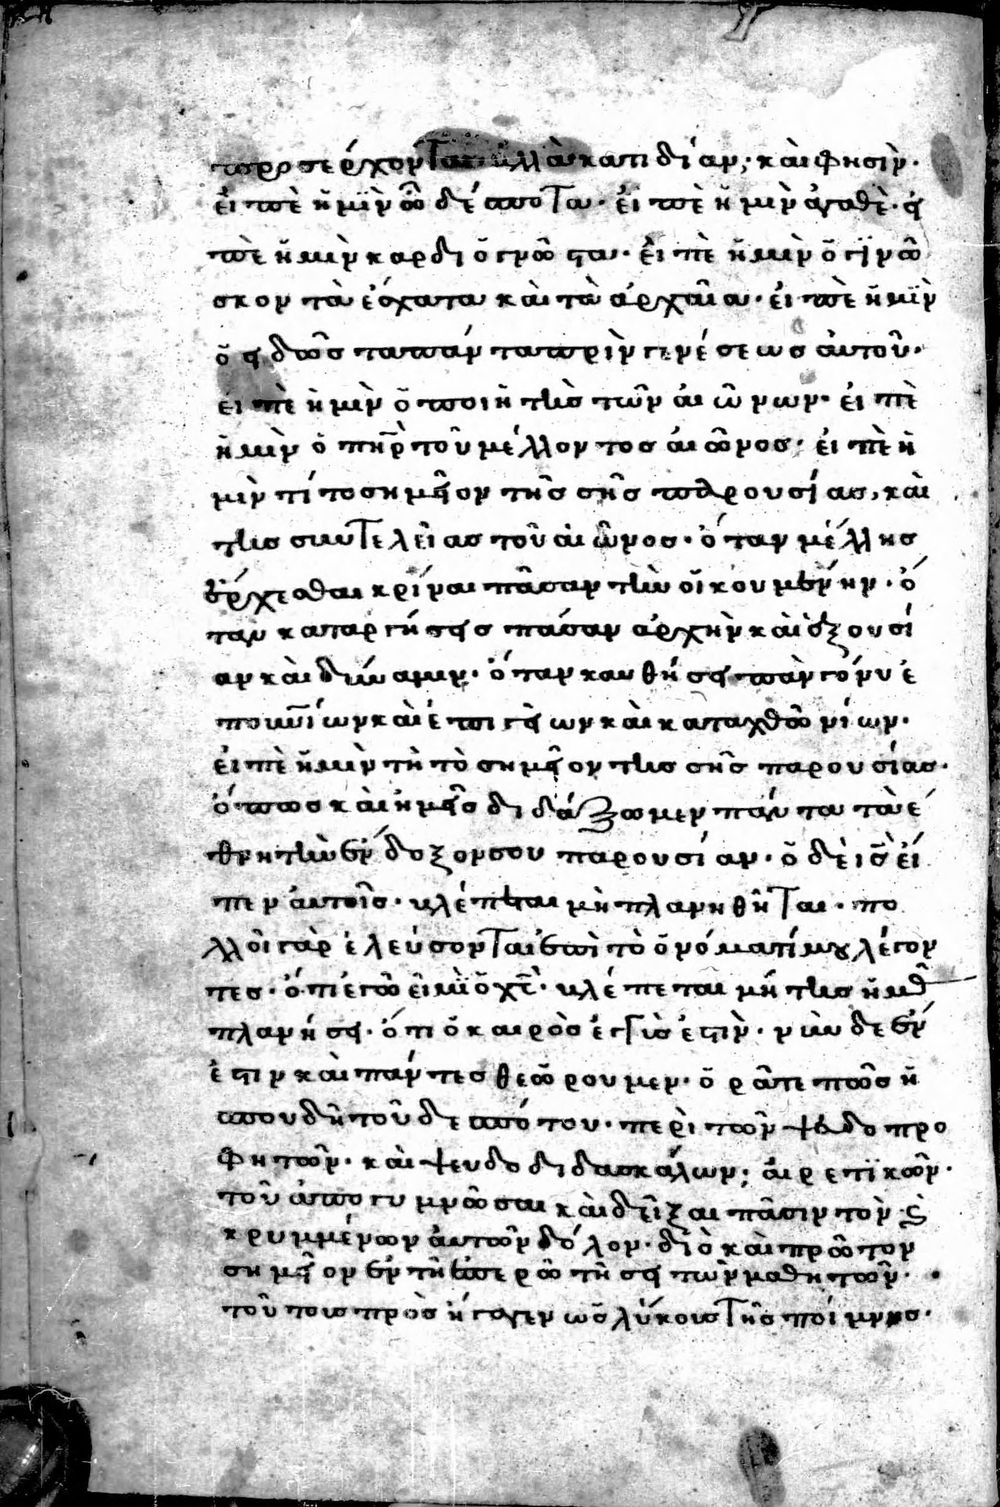 προσέρχονται ἀλλὰ κατιδίαν· καὶ φησὶν·
εἰπὲ ἡμῖν ὦ δέσποτα· εἰπὲ ἡμὶν ἀγαθὲ· εἰ
πὲ ἡμὶν καρδιογνῶστα· εἰπὲ ἡμὶν ὁ γινώ
σκον τὰ ἔσχατα καὶ τὰ ἀρχαῖα· εἰπὲ ἡμῖν
ὁ εἰδὼς τὰ πάντα πρὶν γενέσεως αὐτοῦ·
εἰπὲ ἡμὶν ὁ ποιητὴς τῶν αἰώνων· εἰπὲ
ἡμὶν ὁ πηρ τοῦ μέλλοντος αἰῶνος· εἰπὲ ἡ
μὶν τί το σημεῖον τῆς σῆς παρουσίας, καὶ
τῆς συντελείας τοῦ αἰῶνος· ὅταν μέλλης
ἔρχεσθαι κρίναι πᾶσαν τὴν οἰκουμένην· ὅ
ταν καταργήσεις πάσαν ἀρχὴν καὶ ἐξουσί
αν καὶ δύναμιν· ὅταν κανθήσει πὰν γόνυ ἐ
πουνίων καὶ ἐπιγείων καὶ καταχθωνίων·
εἰπὲ ἡμὶν τὴ τὸ σημεῖον τῆς σῆς παρουσίας·
ὅπως καὶ ἡμεῖς διδάξωμεν πάντα τὰ ἔ
θνη τὴν ἔνδοξον σου παρουσίαν· ὁ δὲ ις εἶ
πεν αὐτοῖς· βλέπεται μὴ πλανηθῆται· πο
λλοὶ γὰρ ἐλεύσονται ἐπὶ τὸ ὀνόματί μου λέγον
τες· ὅτι ἐγὼ εἰμὶ ὁ χς· βλέπεται μή τις ἡμᾶς
πλανήσει· ὅτι ὁ καιρὸς ἐγγὺς ἐστὶν· νῦν δε ἔν
εστιν καὶ πάντες θεωρουμεν· ὁρᾶτε πῶς ἡ
σπουδὴ τοῦ δεσπότου· περὶ τῶν ψευδοπρο
φητῶν· καὶ ψευδοδιδασκάλων; αἱρετικῶν·
τοῦ ἀπογυμνῶσαι καὶ δεῖξαι πᾶσιν τὸν
κρυμμένων αὐτῶν δόλον· διὸ καὶ πρῶτον
σημεῖον ἐν τῆ ἐπερωτήσει τῶν μαθητῶν·
τοῦτοις πρὸς ἤγαγεν ὡς λύκοις τῆς ποίμνης·